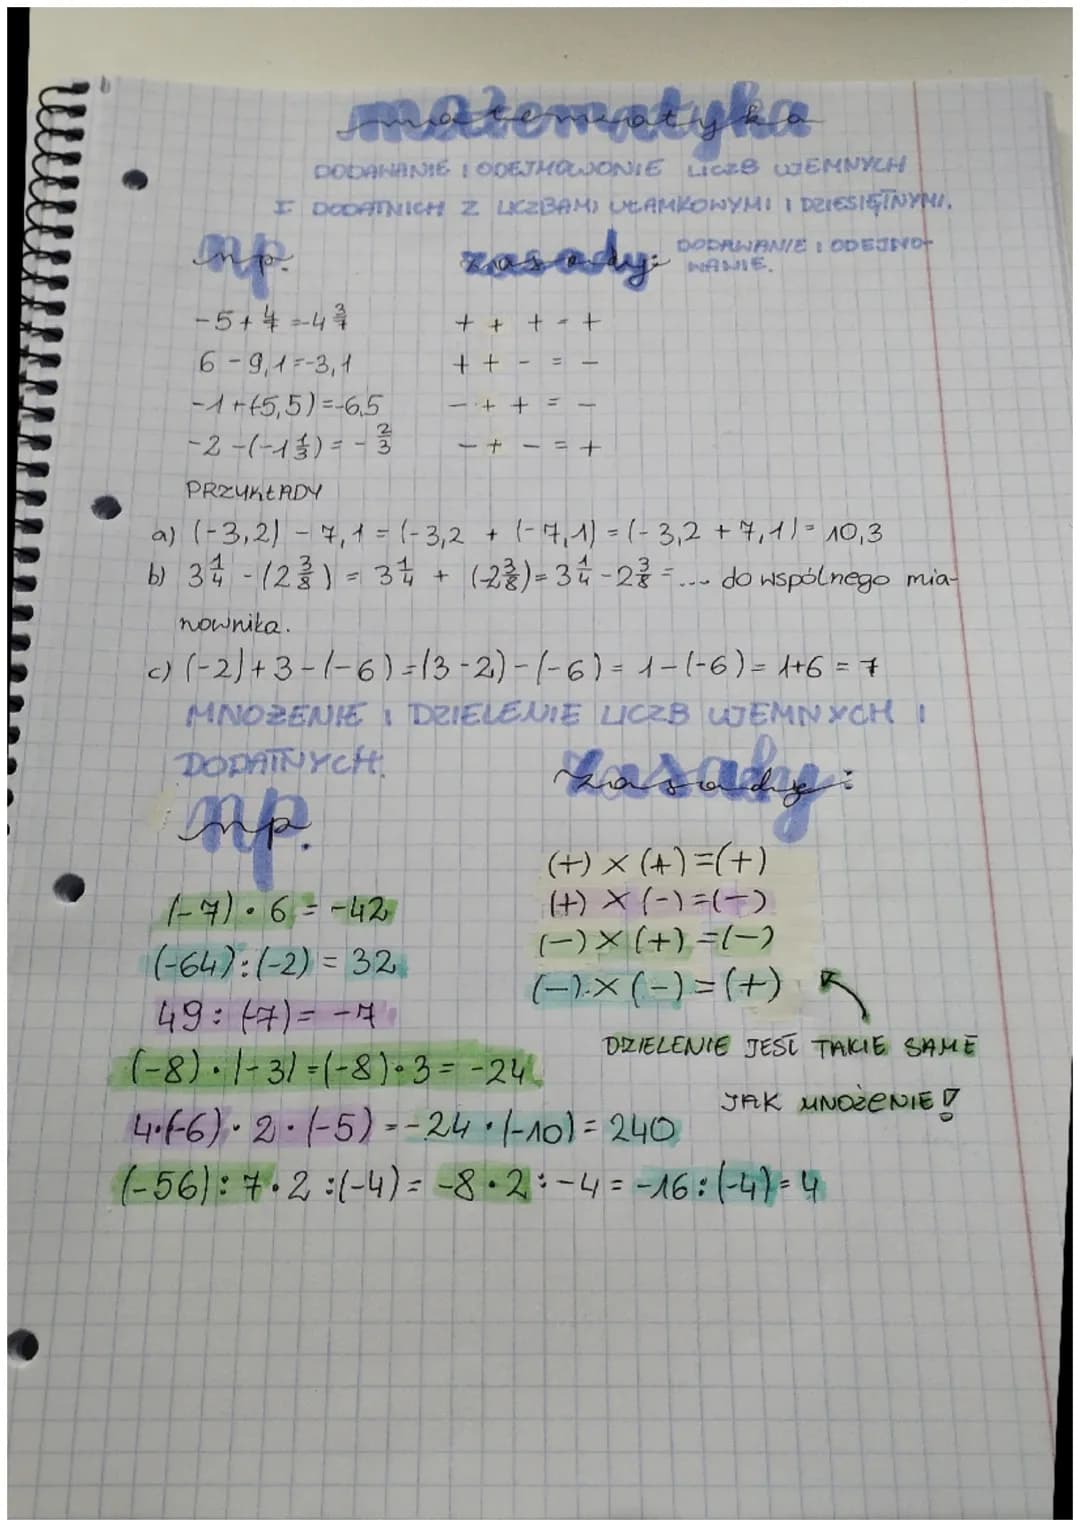 matematyka
DODAWANIE I ODEJMOWONIE LICZB UJEMNYCH
I DODATNICH Z LICZBAMI UŁAMKOWYMI I DZIESIĘTNYMI.
np.
zasady: DODAWANIE I ODEJMO-
WANIE.
-5 + 4/7 = -4 3/7
+ + + = +
6 - 9,1 = -3,1
+ + - = -
-1 + (-5,5) = -6,5
- + + = -
-2 - (-1 1/3) = - 2/3
- + - = +
PRZYKŁADY
a) (-3,2) - 7,1 = (-3,2 + (-7,1) = (-3,2 + 7,1) = 10,3
b) 3 1/4 - (2 3/8) = 3 1/4 + (-2 3/8) = 3 1/4 - 2 3/8 = ... do wspólnego mia-
nownika.
c) (-2) + 3 - (-6) = (3 - 2) - (-6) = 1 - (-6) = 1+6 = 7
MNOŻENIE I DZIELENIE LICZB UJEMNYCH I
DODATNYCH.
zasady:
np.
(+) × (+) = (+)
(+) × (-) = (-)
(-) × (+) = (-)
(-) × (-) = (+)
(-7) · 6 = -42
(-64) : (-2) = 32
49 : (-7) = -7
DZIELENIE JEST TAKIE SAME
JAK MNOŻENIE!
(-8) · |-3| = (-8) · 3 = -24
4·(-6) · 2 · (-5) = -24 · (-10) = 240
(-56) : 7 · 2 : (-4) = -8 · 2 : -4 = -16 : (-4) = 4